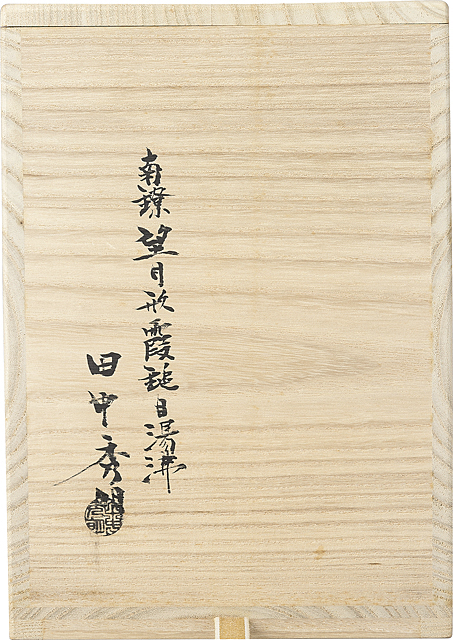 南鐐望月形霞鎚目湯沸
田中秀